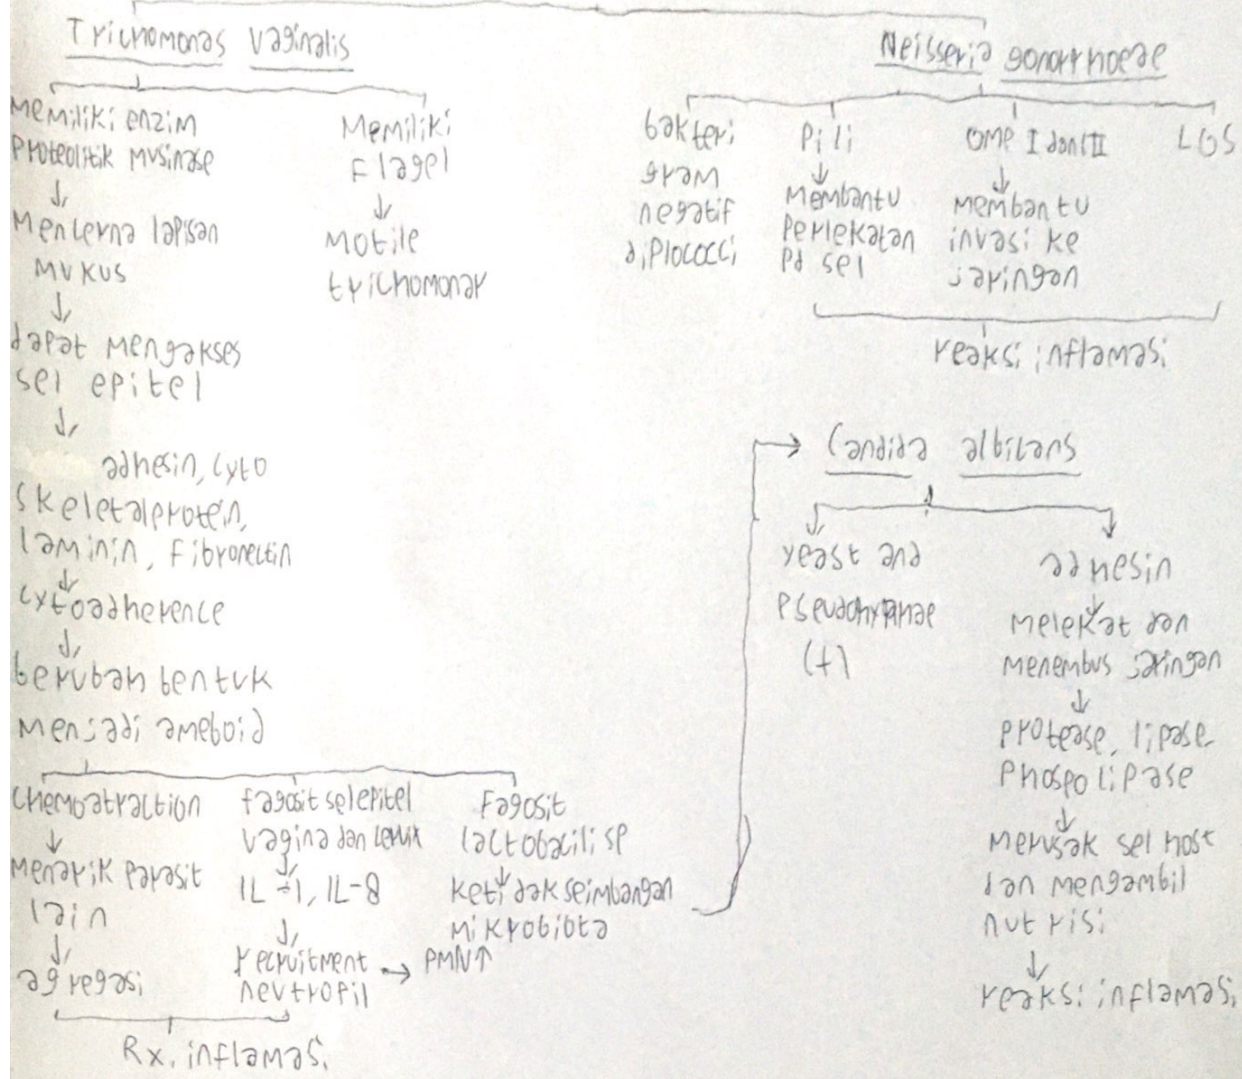 Trichomonas vaginalis
Memiliki enzim
proteolitik musinase
Mencerna lapisan
mukus
dapat mengakses
sel epitel
adhesin, cyto
skeletalprotein,
laminin, fibronectin
cytoadherence
berubah bentuk
menjadi ameboid
Memiliki
flagel
Motile
trichomonas
chemoatraction
menarik parasit
lain
agregasi
fagosit sel epitel
vagina dan cervix
IL-1, IL-8
recruitment
neutropil
PMN↑
Rx. inflamasi
Fagosit
lactobacili sp
ketidakseimbangan
mikrobiota
Neisseria gonorrhoeae
bakteri
gram
negatif
diplococci
Pili
Membantu
perlekatan
pd sel
OMP I dan II
Membantu
invasi ke
jaringan
LOS
reaksi inflamasi
Candida albicans
yeast and
pseudohyphae
(+)
adhesin
melekat dan
menembus jaringan
protease, lipase
phospolipase
merusak sel host
dan mengambil
nutrisi
reaksi inflamasi